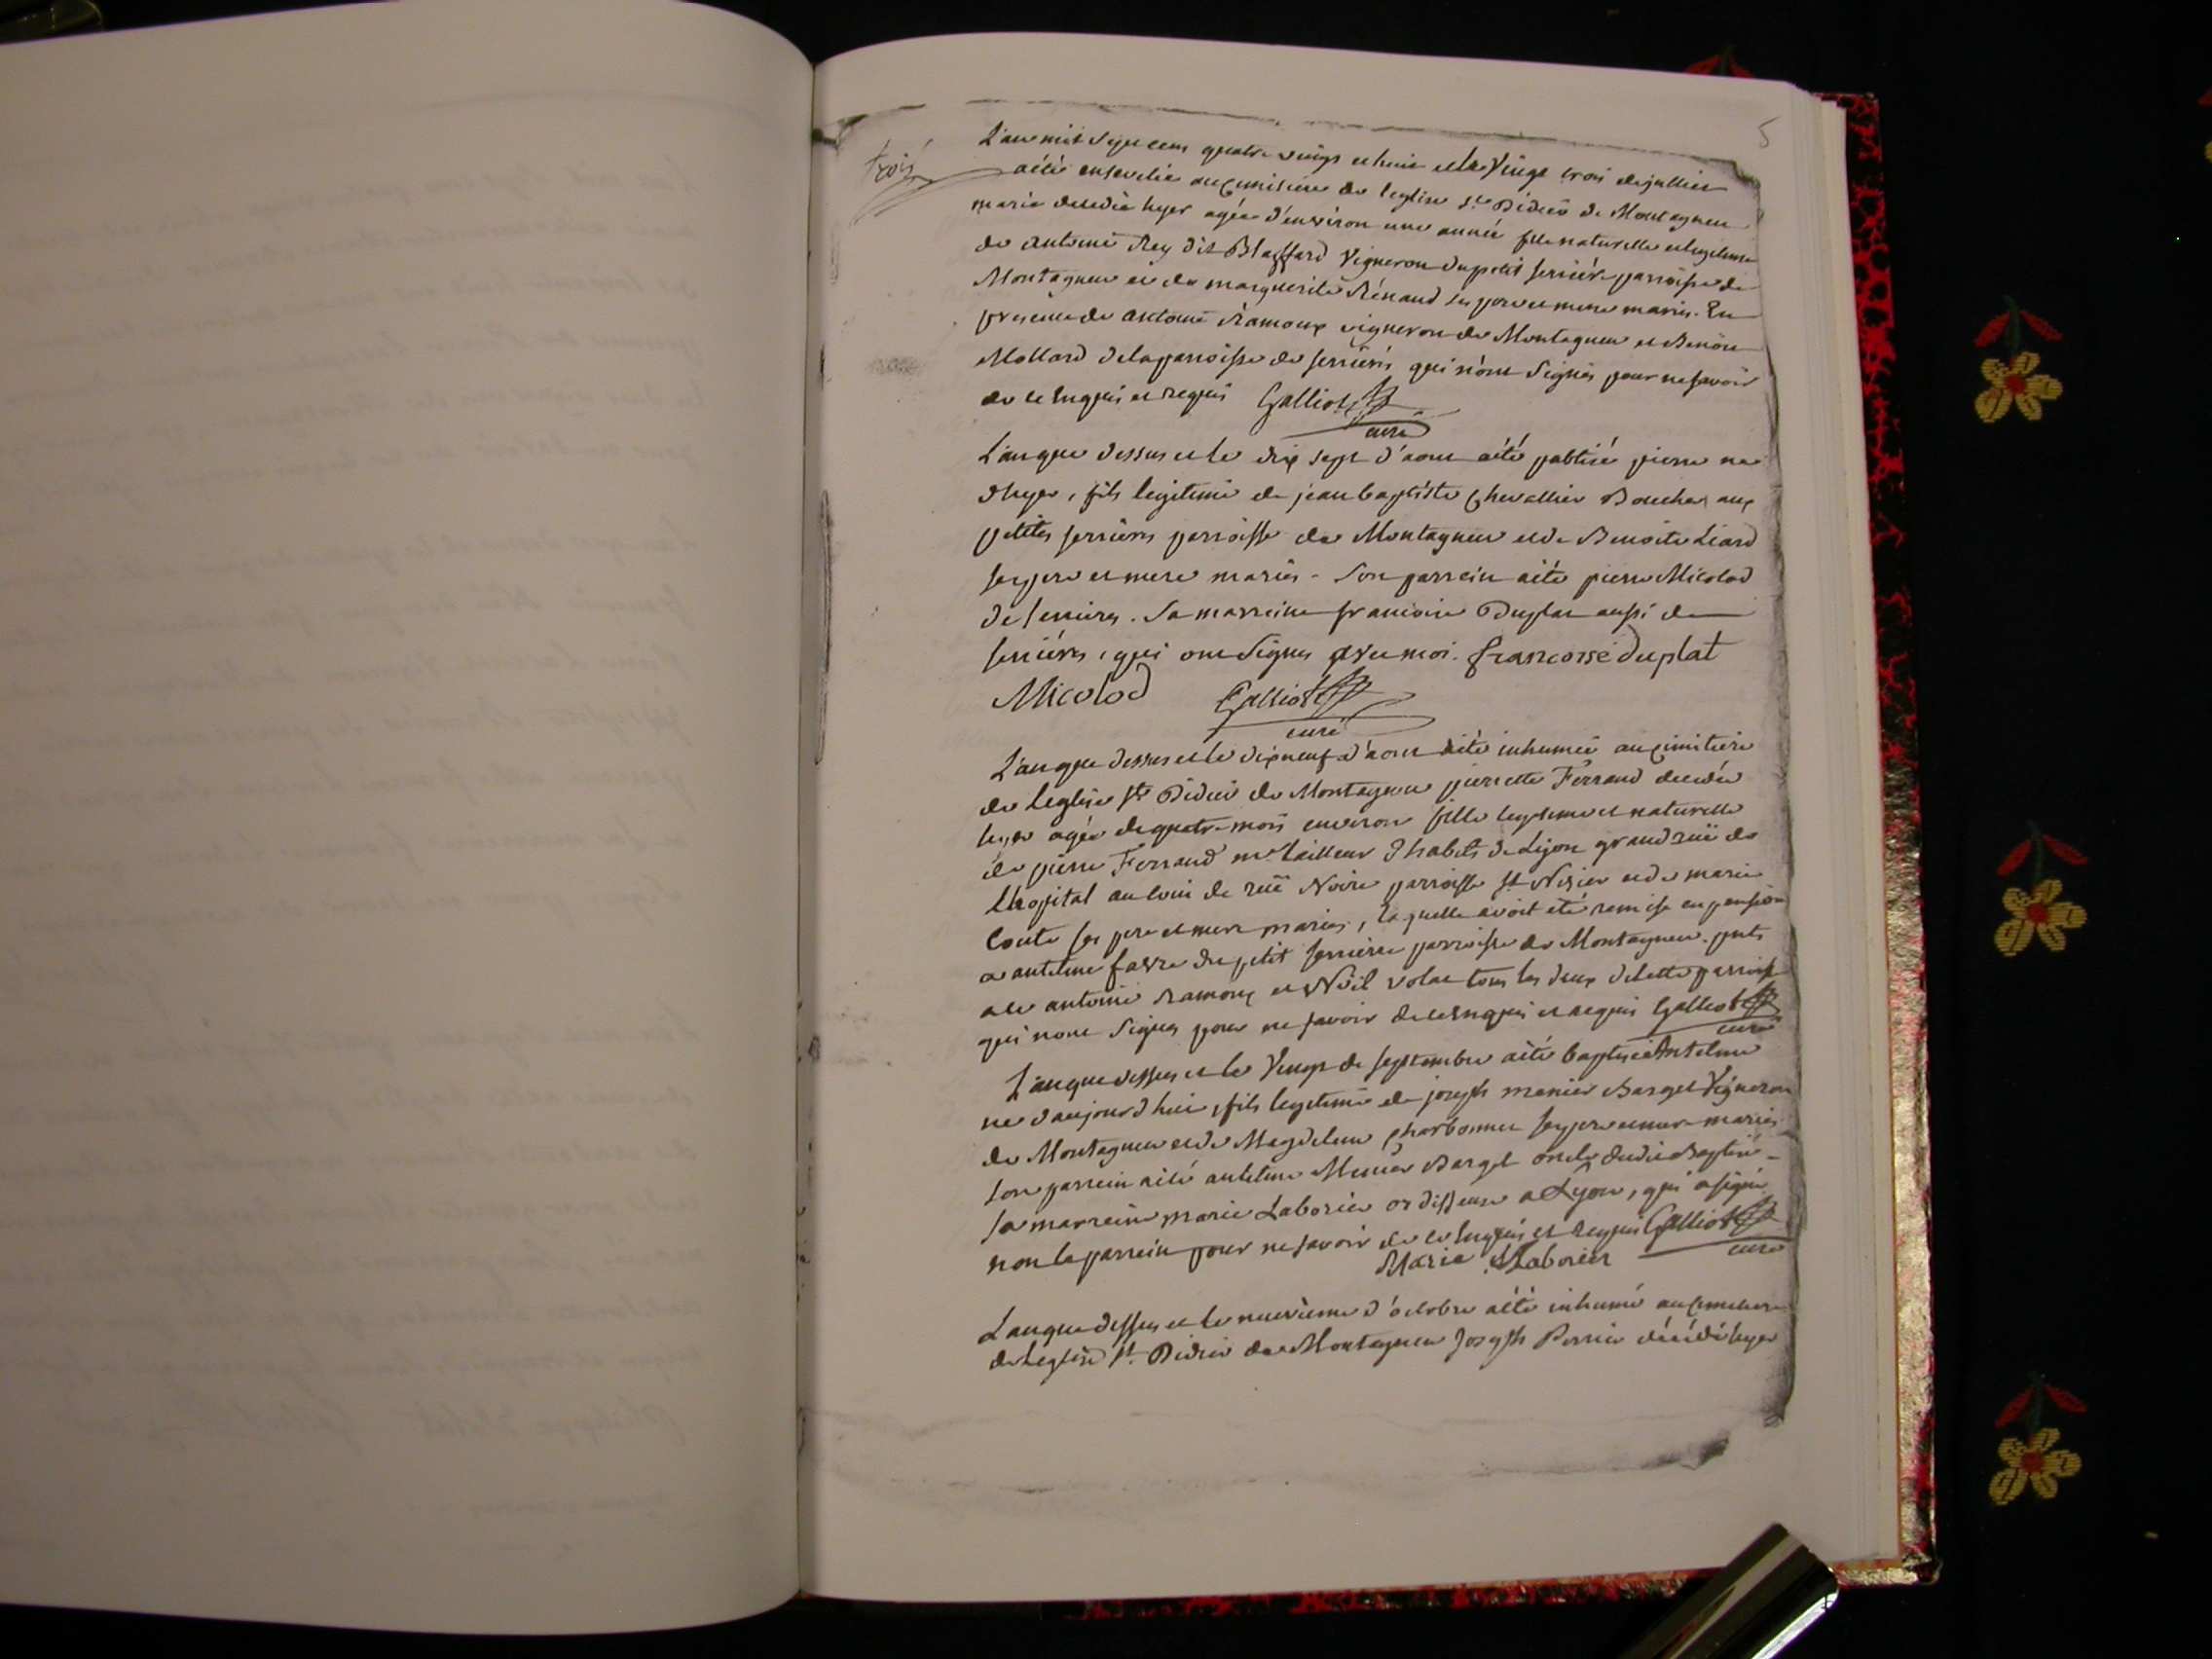 5
trois
L'an mil sept cens quatre vingt et huit et le vingt trois de juillier
a été ensevelie au cimitiere de l'eglise st Didier de Montagneu
marie decedée hyer agée d'environ une année fille naturelle et legitime
de antoine Rey dit Blaffard Vigneron du petit serriére parroisse de
Montagneu et de marguerite Rénaud ses pere et mere mariés. En
presence de antoine Ramoux vigneron de Montagneu et Benôit
Mollard de la parroisse de serriéres qui n'ont signés pour ne savoir
de ce enquis et requis Galliot
curé
L'an que dessus et le dix sept d'aout a été babtisé pierre né
d'hyer, fils legitime de jean baptiste Chevallier Boucher aux
petites serriéres parroisse de Montagneu et de Benoite Liard
ses pere et mere mariés. Son parrein a été pierre Micolod
de serrieres. Sa marreine francoise Duplat aussi de
serriéres, qui ont signés avec moi. francoise duplat
Micolod Galliot
curé
L'an que dessus et le dix neuf d'aout a été inhumée au cimitiere
de Leglise st Didier de Montagneu pierrette Ferrand decedée
hyer agée de quatre mois environ fille legitime et naturelle
de pierre Ferrand me tailleur d'habits de Lyon grand ruë de
L'hopital au coin de ruë Noire parroisse st Nizier et de marie
Conte ses pere et mere mariés, laquelle avoit été remise en pension
a antelme favre du petit serriére parroisse de Montagneu. pnts
a ce antoine Ramoux et Noël volat tous les deux de cette parroisse
qui n'ont signes pour ne savoir de ce enquis et requis Galliot
curé
L'an que dessus et le vingt de septembre a été baptisé Antelme
né d'aujourd'hui, fils legitime de joseph menier Barget Vigneron
de Montagneu et de Magdeleine Charbonnet ses pere et mere mariés
son parrein a été antelme Menier Barget oncle dudit Baptisé
sa marreine marie Laborier ordisseuse a Lyon, qui a signé
non le parrein pour ne savoir de ce enquis et requis Galliot
Marie Laborier curé
L'an que dessus et le neuvieme d'octobre a été inhumé au cimetiere
de Leglise st. Didier de Montagneu Joseph Perrier décédé hyer